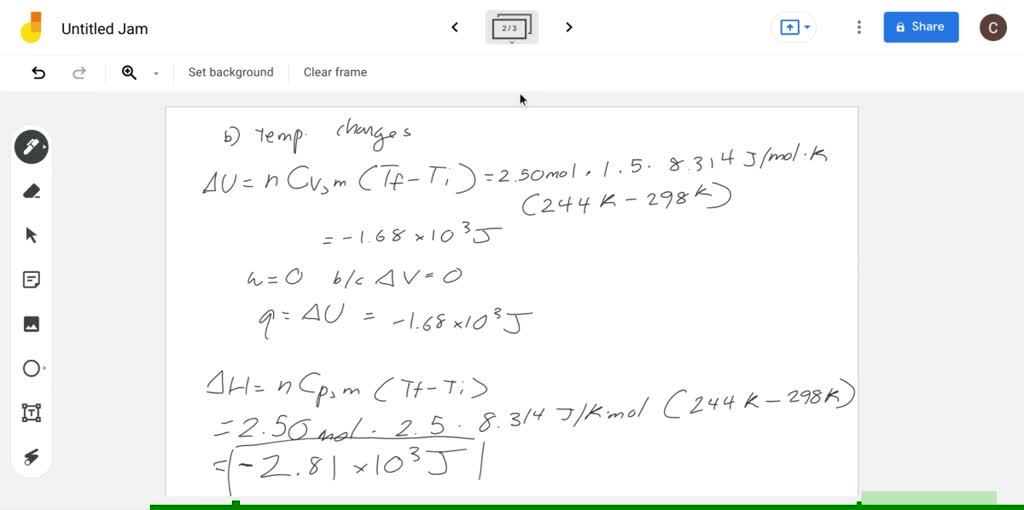 Untitled Jam
2/3
Share
C
Set background
Clear frame
b) Temp. changes
ΔU = n Cv,m (Tf - Ti) = 2.50 mol · 1.5 · 8.314 J/mol·K
(244 K - 298 K)
= -1.68 × 10³ J
w = 0 b/c ΔV = 0
q = ΔU = -1.68 × 10³ J
ΔH = n Cp,m (Tf - Ti)
= 2.50 mol · 2.5 · 8.314 J/K mol (244 K - 298 K)
= -2.81 × 10³ J